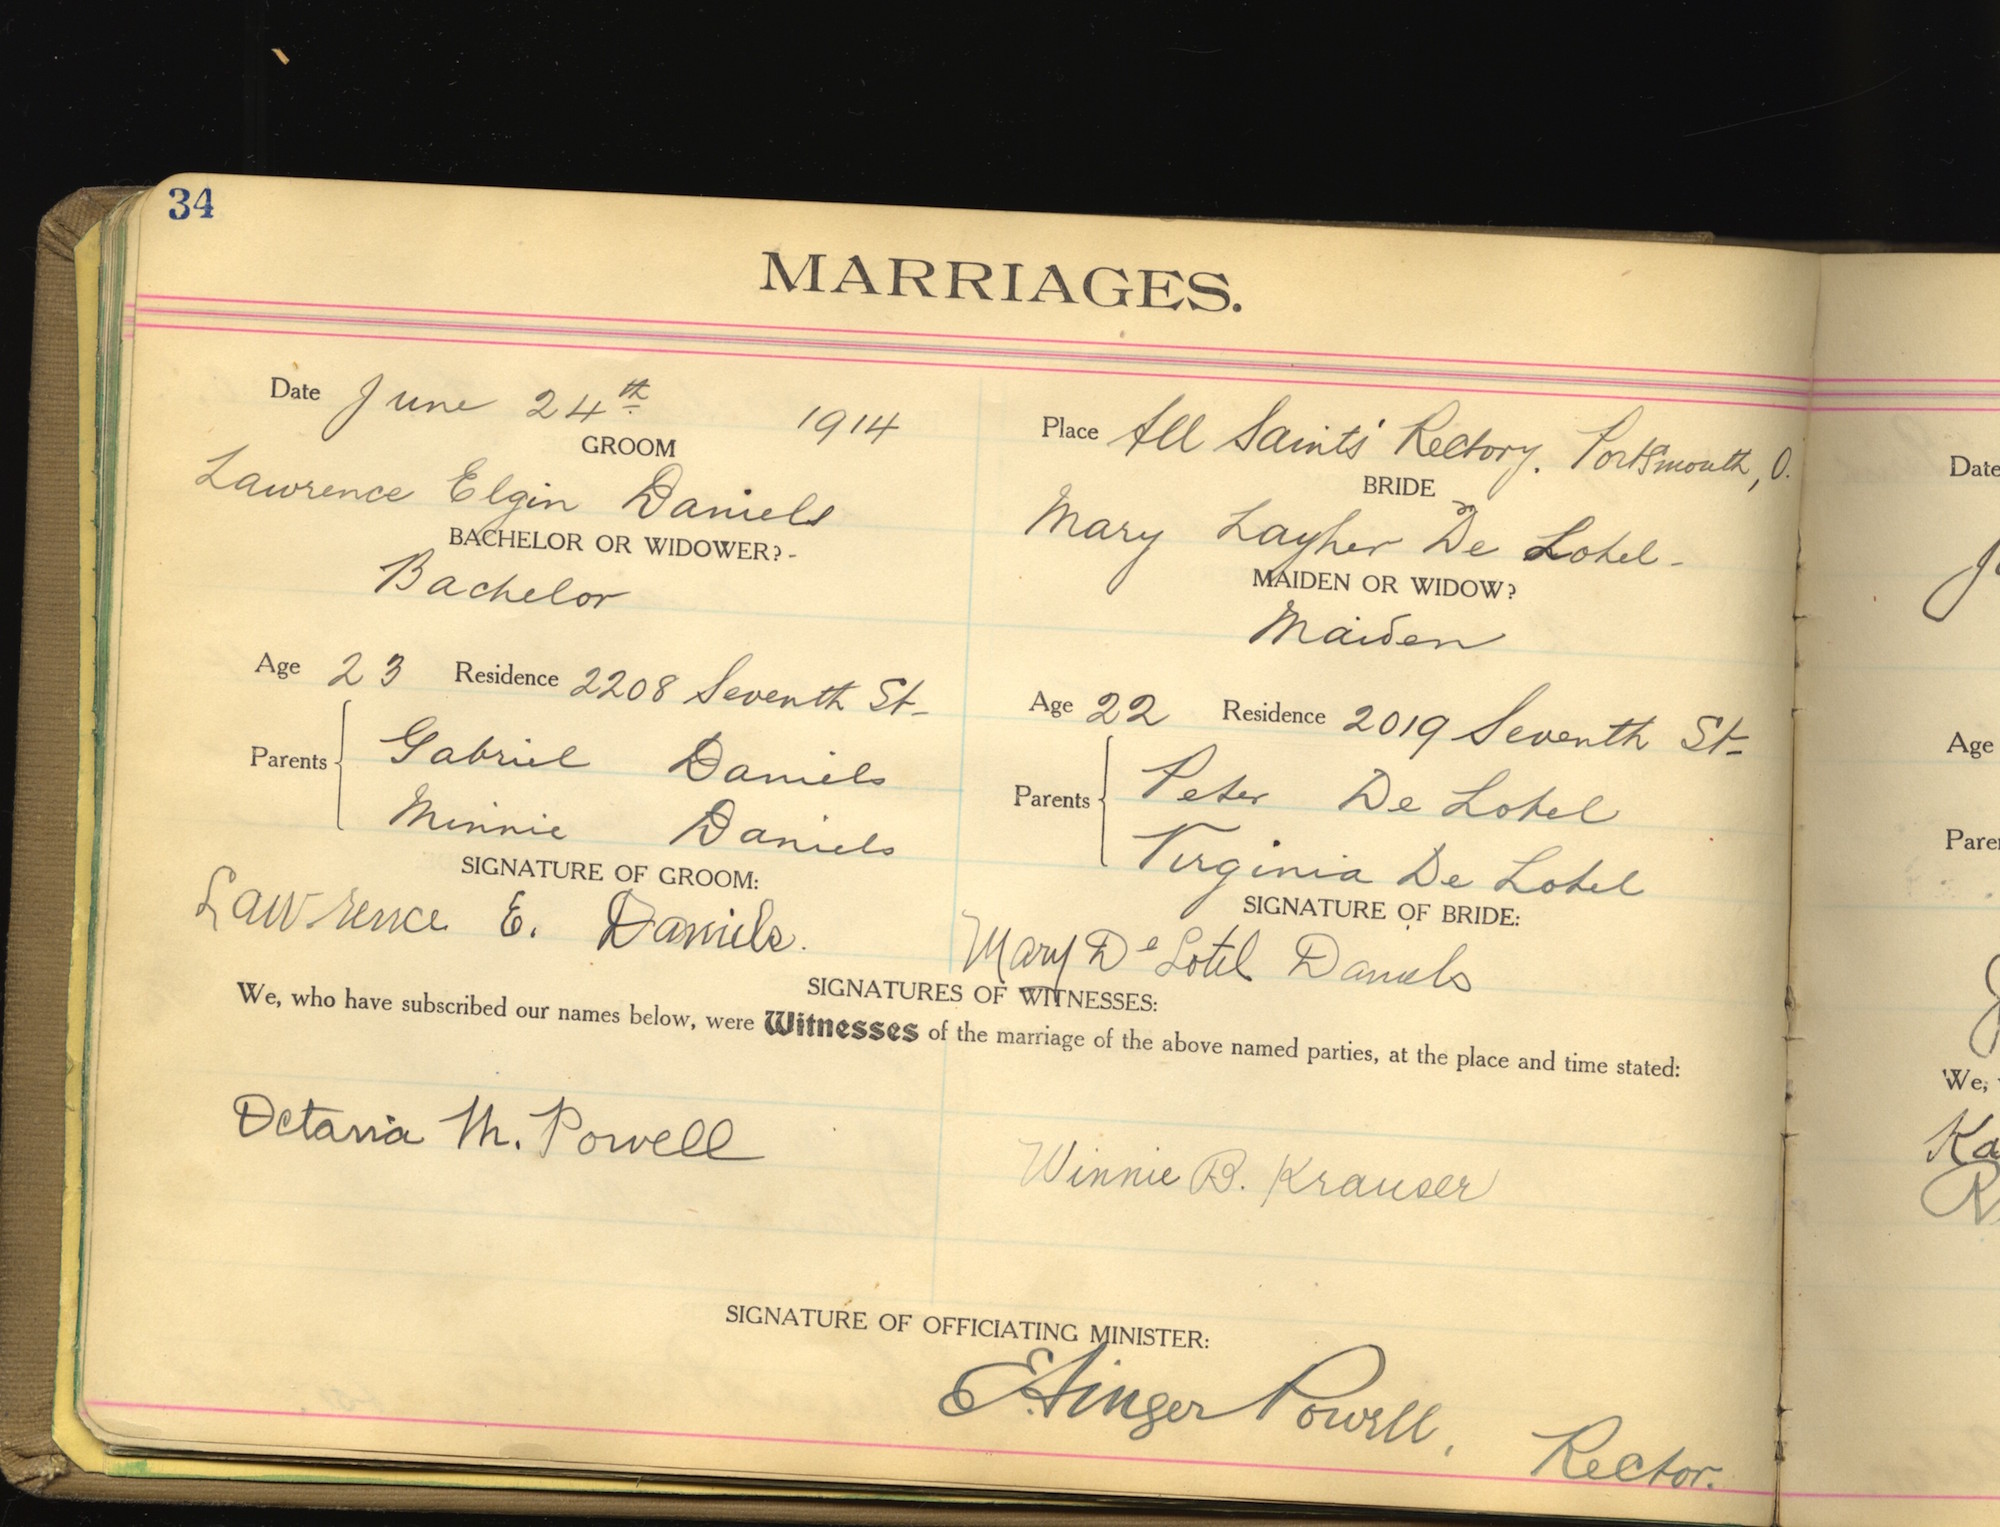 34
MARRIAGES.
Date June 24th 1914
GROOM
Lawrence Elgin Daniels
BACHELOR OR WIDOWER?-
Bachelor
Age 23 Residence 2208 Seventh St-
Parents Gabriel Daniels
Minnie Daniels
SIGNATURE OF GROOM:
Lawrence E. Daniels.
Place All Saints' Rectory. Portsmouth, O.
BRIDE
Mary Layher De Lotel-
MAIDEN OR WIDOW?
Maiden
Age 22 Residence 2019 Seventh St-
Parents Peter De Lotel
Virginia De Lotel
SIGNATURE OF BRIDE:
Mary De Lotel Daniels
SIGNATURES OF WITNESSES:
We, who have subscribed our names below, were Witnesses of the marriage of the above named parties, at the place and time stated:
Octavia M. Powell
Winnie B. Krauser
SIGNATURE OF OFFICIATING MINISTER:
E. Ainger Powell, Rector.
Date
Age
We,
Ka